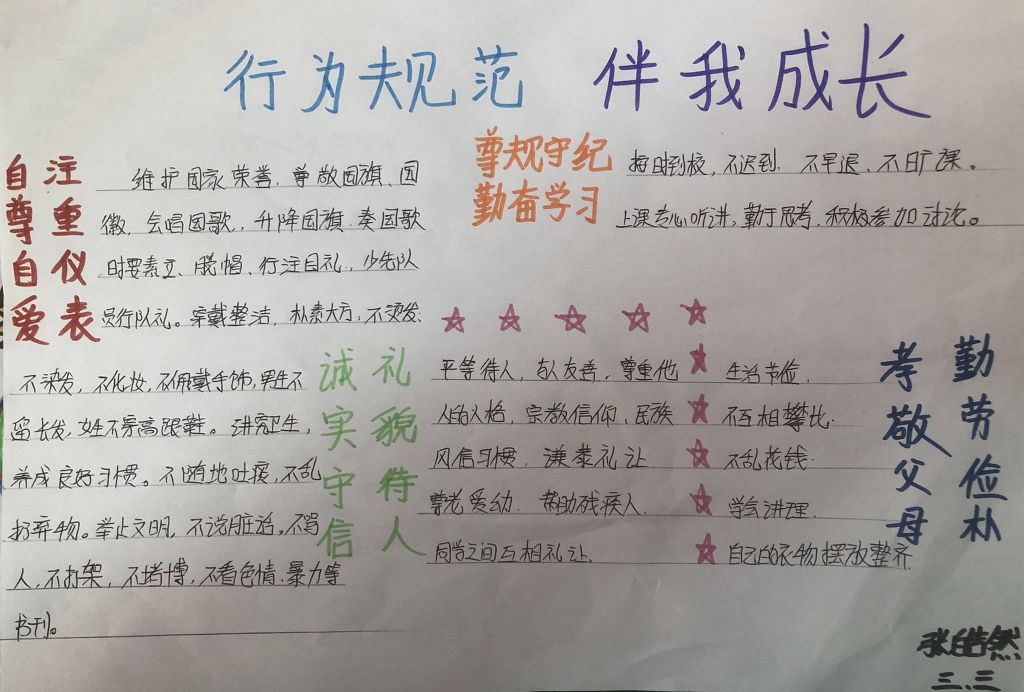 行为规范 伴我成长
自尊自爱
注重仪表
维护国家荣誉,尊敬国旗、国
徽,会唱国歌,升降国旗、奏国歌
时要肃立、脱帽、行注目礼,少先队
员行队礼。穿戴整洁,朴素大方,不烫发,
不染发,不化妆,不佩戴手饰,男生不
留长发,女生不穿高跟鞋。讲究卫生,
养成良好习惯。不随地吐痰,不乱
扔弃物。举止文明,不说脏话。不骂
人,不打架,不堵博,不看色情.暴力等
书刊。
尊规守纪
勤奋学习
按时到校,不迟到、不早退、不旷课。
上课专心听讲,勤于思考,积极参加讨论。
诚实守信
礼貌待人
平等待人,与人友善,尊重他
人的人格,宗教信仰、民族
风信习惯,谦恭礼让
尊老爱幼、帮助残疾人.
同学之间互相礼让.
生活节俭.
不互相攀比.
不乱花钱.
学会讲理.
自己的衣物摆放整齐.
孝敬父母
勤劳俭朴
张皓然
三.三